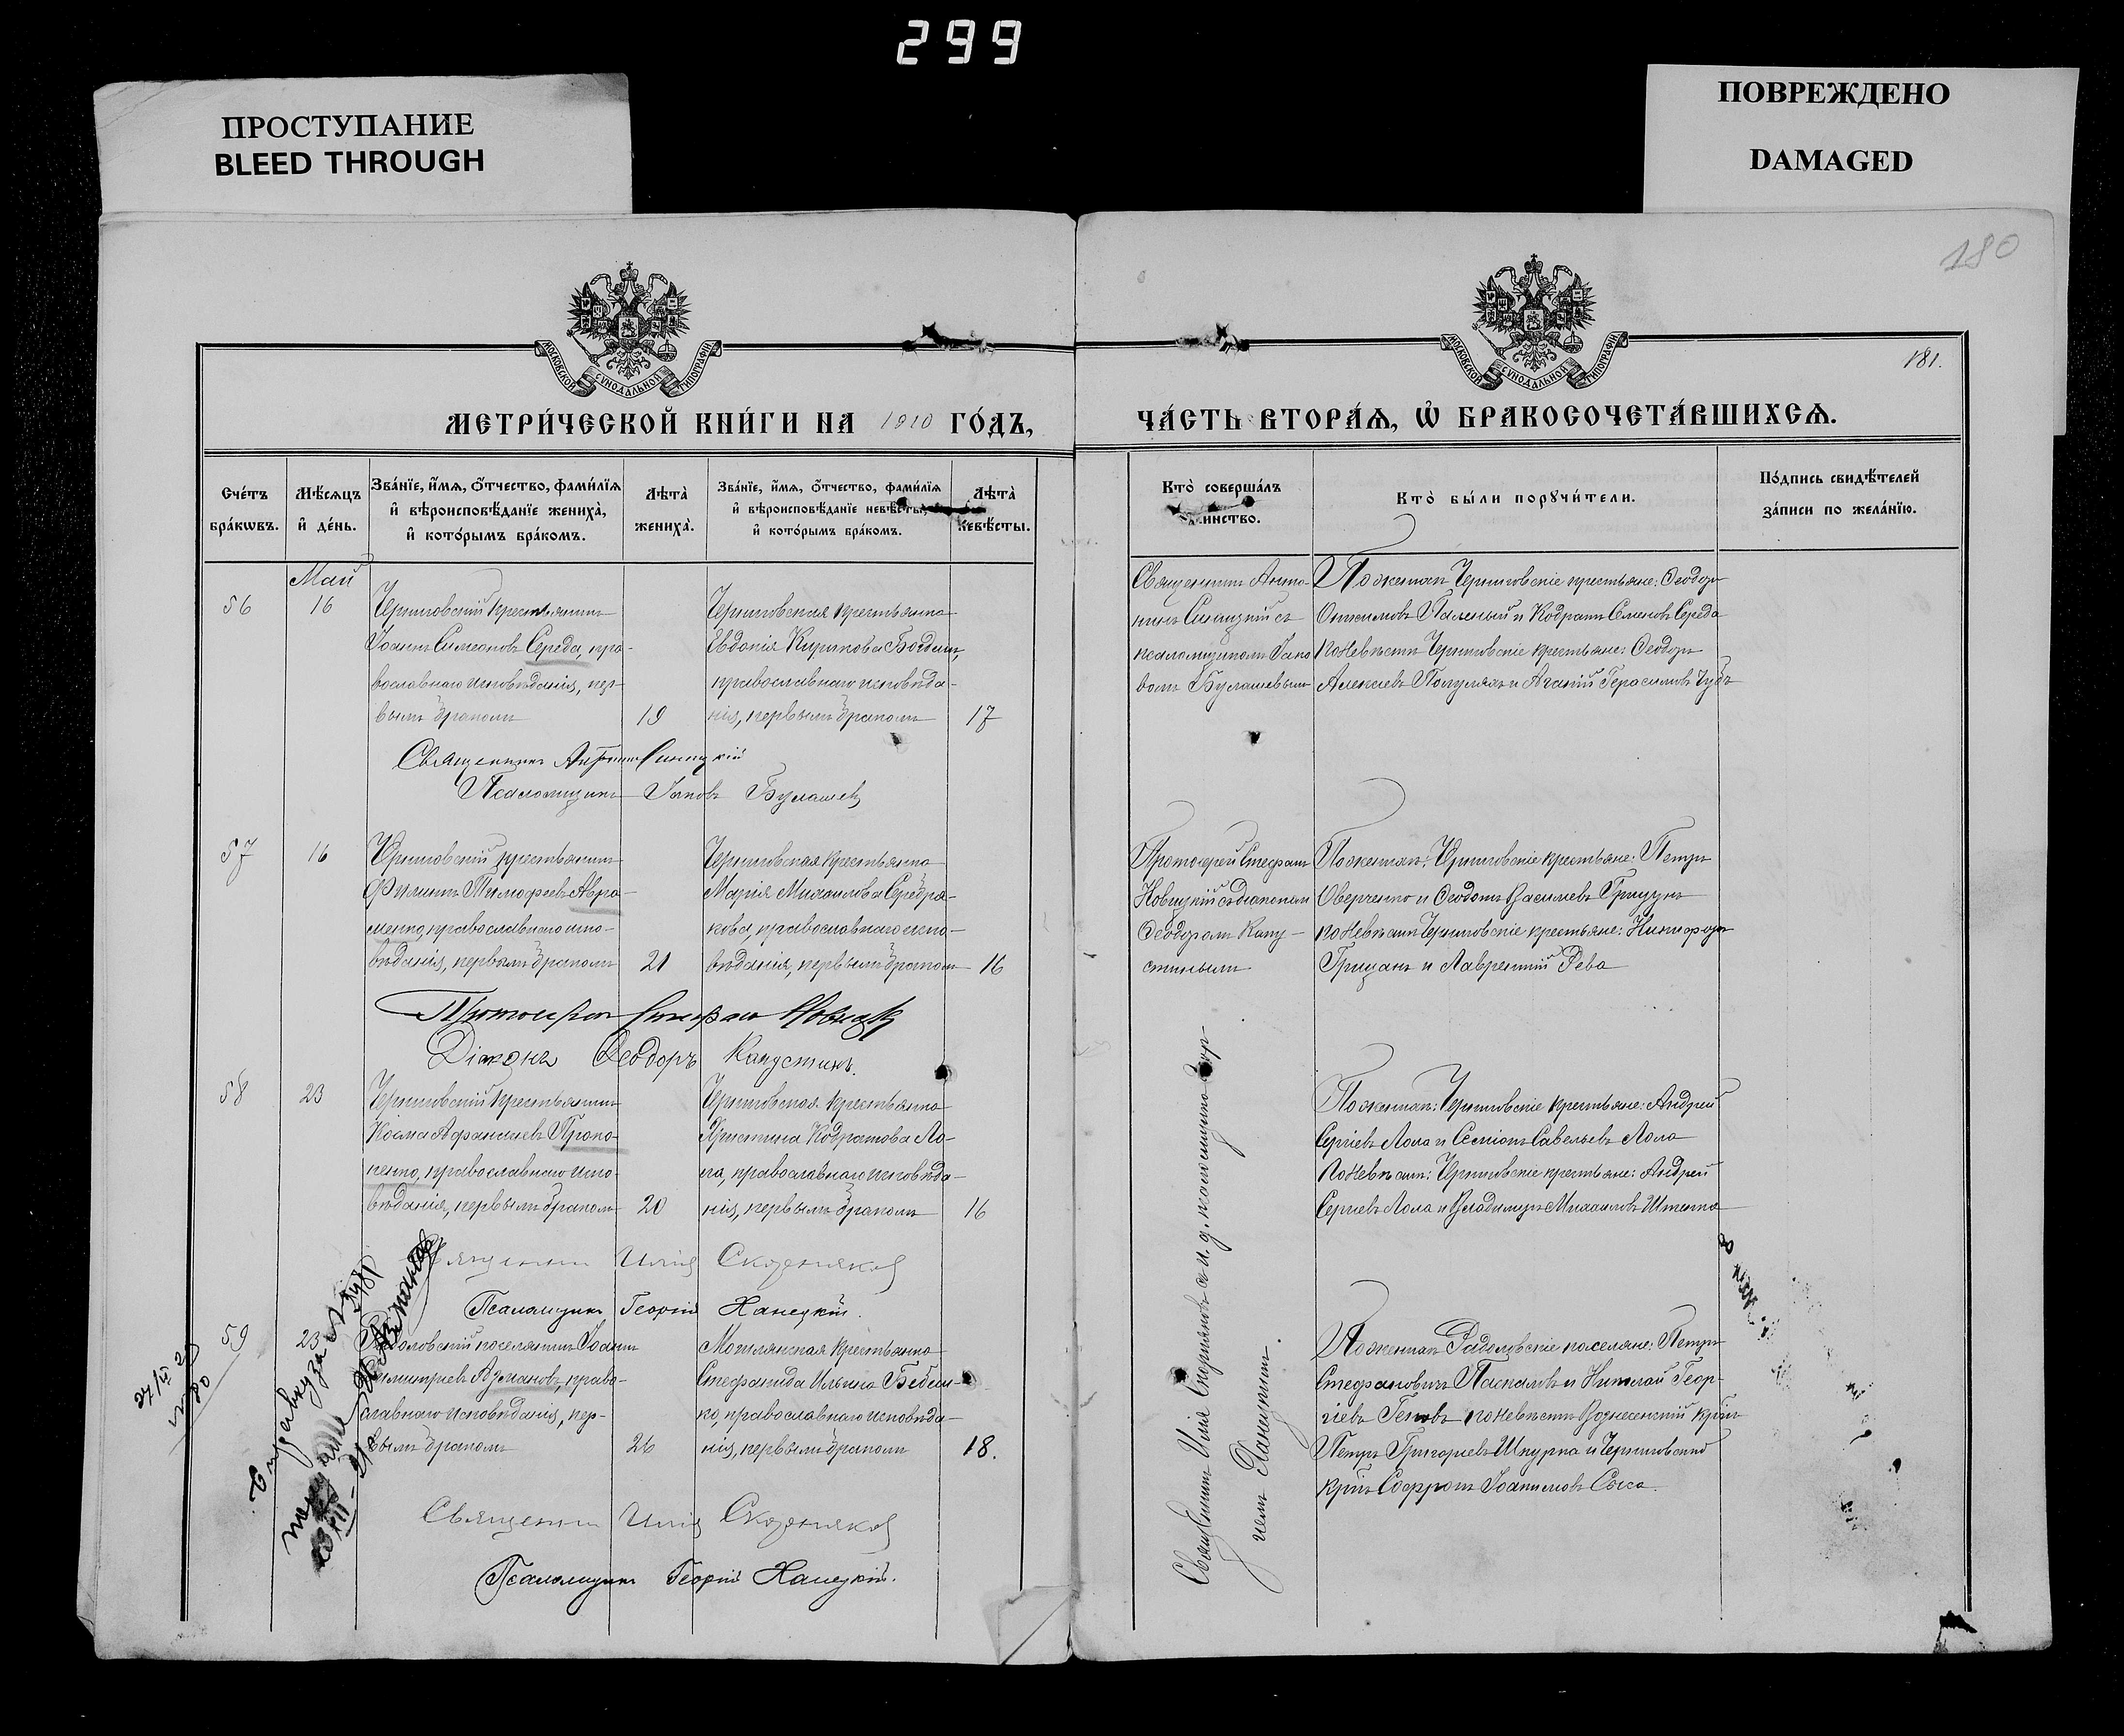 299
ПРОСТУПАНИЕ
BLEED THROUGH
ПОВРЕЖДЕНО
DAMAGED
180
МОСКОВСКОЙ СѴНОДАЛЬНОЙ ТИПОГРАФІИ
МОСКОВСКОЙ СѴНОДАЛЬНОЙ ТИПОГРАФІИ
181.
МЕТРИ́ЧЕСКОЙ КНИ́ГИ НА 1910 ГО́ДЪ,
ЧА́СТЬ ВТОРА́Ѧ, Ѡ҆ БРАКОСОЧЕТА́ВШИХСѦ.
Сче́тъ
бра́кѡвъ.
Мѣ́сѧцъ
и҆ де́нь.
Зва́нїе, и҆́мѧ, ѻ҆́тчество, фами́лїѧ
и҆ вѣроисповѣ́данїе жениха̀,
и҆ кото́рымъ бра́комъ.
Лѣта̀
жениха̀.
Зва́нїе, и҆́мѧ, ѻ҆́тчество, фами́лїѧ
и҆ вѣроисповѣ́данїе невѣ́сты,
и҆ кото́рымъ бра́комъ.
Лѣта̀
невѣ́сты.
Кто̀ соверша́лъ
инство.
Кто̀ бы́ли порꙋчи́тели.
По́дпись свидѣ́телей
за́писи по жела́нїю.
Май
56
16
Черниговскій крестьянинъ
Іоаннъ Симеоновъ Середа, пра-
вославнаго исповѣданія, пер-
вымъ бракомъ
19
Черниговская крестьянка
Евдокія Кирикова Богдан,
православнаго исповѣда-
нія, первымъ бракомъ
17
Священникъ Анто-
нинъ Синицкій съ
псаломщикомъ Іако
вомъ Булашевымъ
По женихѣ Черниговскіе крестьяне: Ѳеодоръ
Онисимовъ Паленый и Кодратъ Семеновъ Середа
по невѣстѣ Черниговскіе крестьяне: Ѳеодоръ
Алексѣевъ и Агапій Герасимовъ
Священникъ Антонинъ Синицкій
Псаломщикъ Іаковъ Булашевъ
57
16
Черниговскій крестьянинъ
Филиппъ Тимоѳеевъ Авра-
менко, православнаго испо-
вѣданія, первымъ бракомъ
21
Черниговская крестьянка
Марія Михаилова Серебря-
кова, православнаго испо-
вѣданія, первымъ бракомъ
16
Протоіерей Стефанъ
Новицкій съ діакономъ
Ѳеодоромъ Капу-
стинымъ
По женихѣ: Черниговскіе крестьяне: Петръ
Оверченко и Ѳеодотъ Василіевъ Грицунъ
по невѣстѣ Черниговскіе крестьяне: Никифоръ
Грицанъ и Лаврентій Рева
Протоіерей Стефанъ Новицкій
Діаконъ Ѳеодоръ Капустинъ.
58
23
Черниговскій крестьянинъ
Косма Аѳанасіевъ Проко-
пенко, православнаго испо-
вѣданія, первымъ бракомъ
20
Черниговская крестьянка
Христина Кодратова Ло-
ла, православнаго исповѣда-
нія, первымъ бракомъ
16
По женихѣ: Черниговскіе крестьяне: Андрей
Сергіевъ Лола и Семіонъ Савельевъ Лола
По невѣстѣ: Черниговскіе крестьяне: Андрей
Сергіевъ Лола и Владимиръ Михаиловъ
Священникъ Илія Скорняковъ
Псаломщикъ Георгій Ханецкій.
59
23
Радоловскій поселянинъ Іоаннъ
Димитріевъ Азмановъ, право-
славнаго исповѣданія, пер-
вымъ бракомъ
26
Могилянская крестьянка
Стефанида Ильина Бебеш-
ко, православнаго исповѣда-
нія, первымъ бракомъ
18.
Священникъ Илія Скорняковъ и и. д. псаломщика Геор-
гіемъ Ханецкимъ.
По женихѣ Радоловскіе поселяне: Петръ
Стефановичъ Паскаловъ и Николай Геор-
гіевъ Геновъ по невѣстѣ Вознесенскій крнъ
Петръ Григорьевъ Шкурка и Черниговскій
крнъ Софронъ Іоакимовъ Сыса.
Священникъ Илія Скорняковъ
Псаломщикъ Георгій Ханецкій.
справку за №